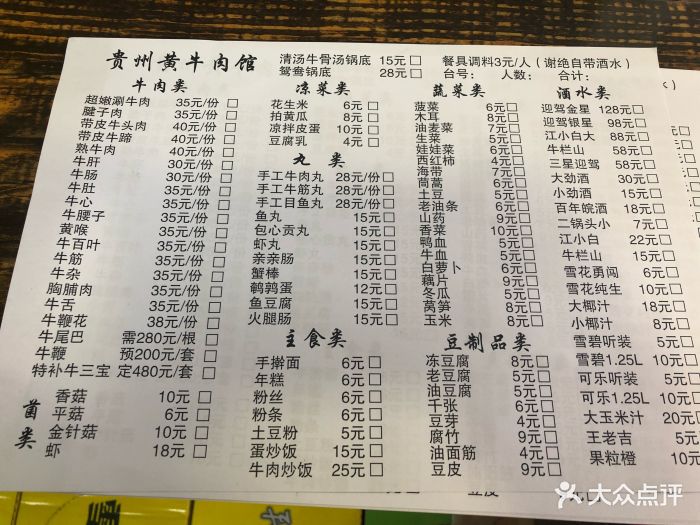 贵州黄牛肉馆
清汤牛骨汤锅底 15元□
鸳鸯锅底 28元□
餐具调料3元/人（谢绝自带酒水）
台号： 人数： 合计：
牛肉类
超嫩涮牛肉 35元/份 □
腱子肉 35元/份 □
带皮牛头肉 40元/份 □
带皮牛蹄 40元/份 □
熟牛肉 40元/份 □
牛肝 30元/份 □
牛肠 30元/份 □
牛肚 35元/份 □
牛心 35元/份 □
牛腰子 35元/份 □
黄喉 35元/份 □
牛百叶 35元/份 □
牛筋 35元/份 □
牛杂 35元/份 □
胸脯肉 35元/份 □
牛舌 35元/份 □
牛鞭花 38元/份 □
牛尾巴 需280元/根 □
牛鞭 预200元/套 □
特补牛三宝 定480元/套 □
菌类
香菇 10元 □
平菇 6元 □
金针菇 10元 □
虾 18元 □
凉菜类
花生米 6元 □
拍黄瓜 8元 □
凉拌皮蛋 10元 □
豆腐乳 4元 □
丸类
手工牛肉丸 28元/份□
手工牛筋丸 28元/份□
手工目鱼丸 28元/份□
鱼丸 15元□
包心贡丸 15元□
虾丸 15元□
亲亲肠 15元□
蟹棒 15元□
鹌鹑蛋 12元□
鱼豆腐 15元□
火腿肠 15元□
主食类
手擀面 6元□
年糕 6元□
粉丝 6元□
粉条 6元□
土豆粉 5元□
蛋炒饭 15元□
牛肉炒饭 25元□
蔬菜类
菠菜 6元□
木耳 8元□
油麦菜 7元□
生菜 5元□
娃娃菜 6元□
西红柿 4元□
海带 7元□
茼蒿 6元□
土豆 5元□
老油条 6元□
山药 9元□
香菜 10元□
鸭血 5元□
牛血 5元□
白萝卜 6元□
藕片 9元□
冬瓜 5元□
莴笋 8元□
玉米 5元□
豆制品类
冻豆腐 8元□
老豆腐 5元□
油豆腐 5元□
千张 6元□
豆芽 4元□
腐竹 9元□
油面筋 4元□
豆皮 9元□
酒水类
迎驾金星 128元□
迎驾银星 98元□
江小白大 88元□
牛栏山 58元□
三星迎驾 58元□
大劲酒 30元□
小劲酒 15元□
百年皖酒 18元□
二锅头小 7元□
江小白 22元□
牛栏山 15元□
雪花勇闯 6元□
雪花纯生 10元□
大椰汁 18元□
小椰汁 8元□
雪碧听装 5元□
雪碧1.25L 10元□
可乐听装 5元□
可乐1.25L 10元□
大玉米汁 20元□
王老吉 5元□
果粒橙 10元□
大众点评